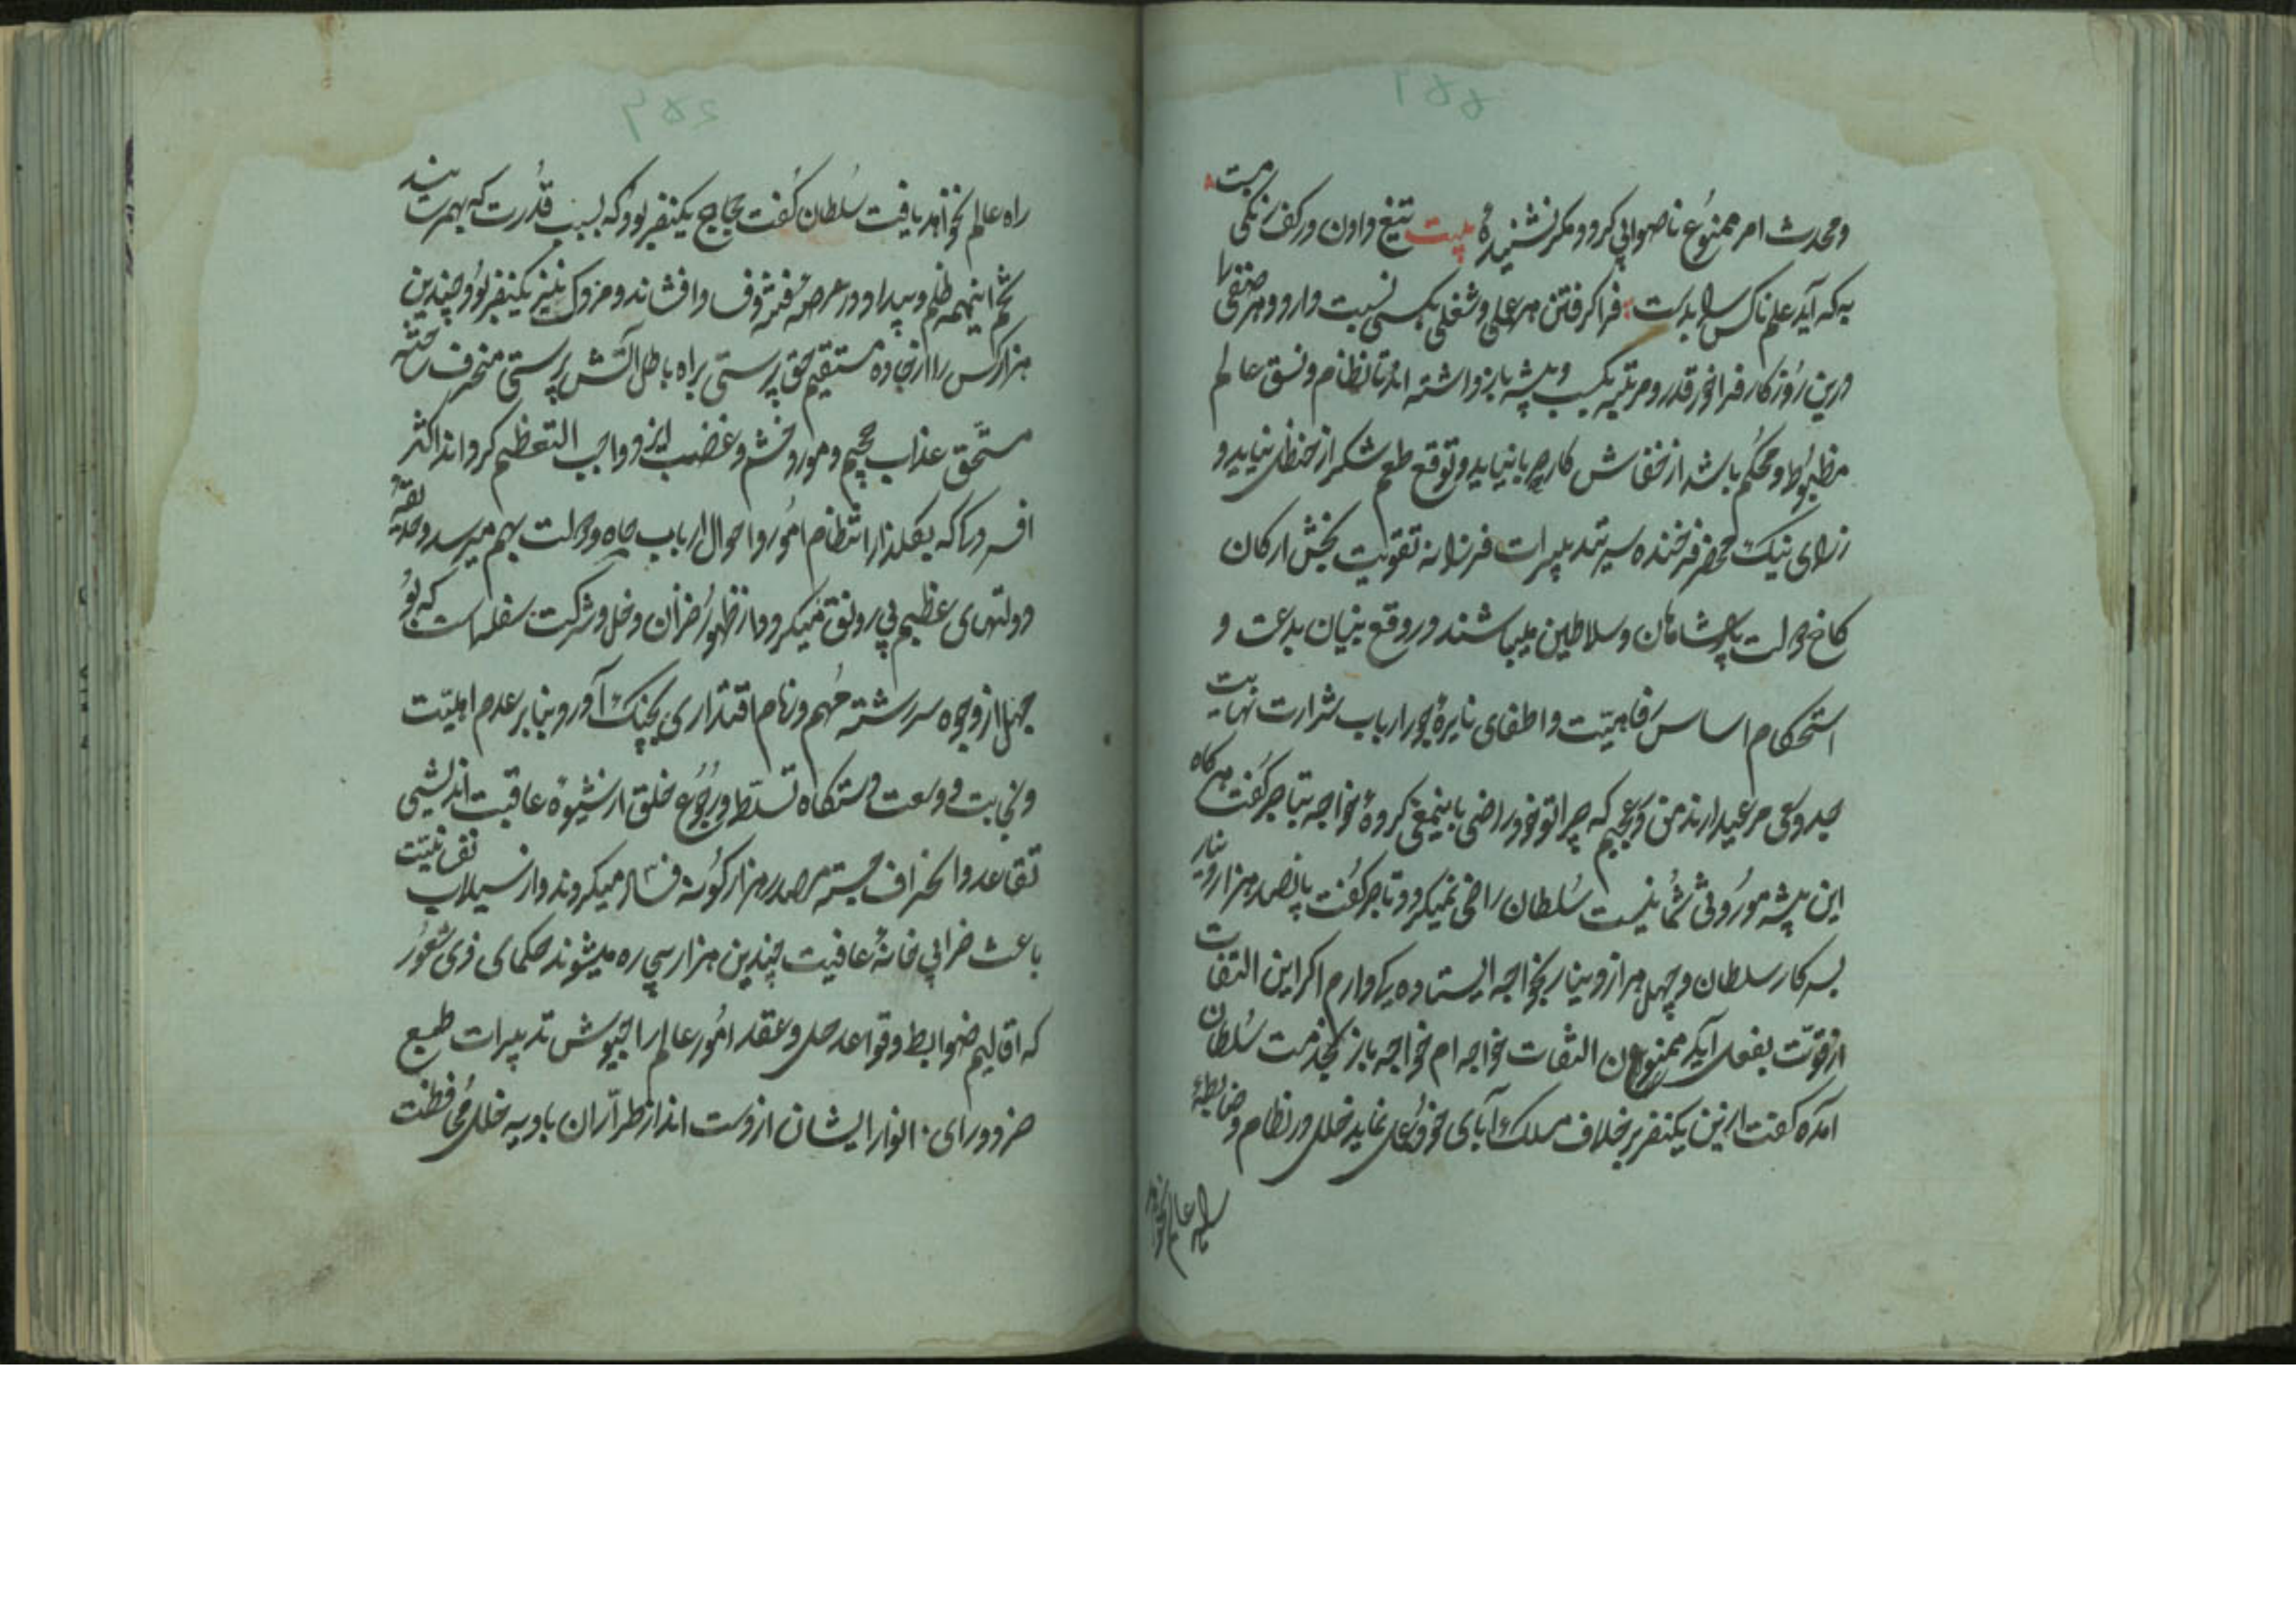 و محدث امر ممنوع ناصوابی کرود مکر نشنیدهٔ بیت تیغ دادن در کف زنکی مست
به که آید علم ناکس را بدست فرا کرفتن هر علمی و شغلی بکسی نسبت دارد و هر صنفی را
درین روزکار فراخور قدر و مرتبه بکسب و پیشه بازداشته اند تا نظام و نسق عالم
مظبوط و محکم باشد از خفاش کار حربا نیاید و توقع طعم شکر از حنظل نباید و
زرای نیک محضر فرخنده سیر تدبیرات فرزانه تقویت بخش ارکان
کاخ دولت پادشاهان و سلاطین میباشند در وقع بنیان بدعت و
استحکام اساس رفاهیت و اطفای نایرهٔ جور ارباب شرارت نهایت
جد و سعی مرعیدارند من در عجبم که چرا تو خود راضی باینمعنی کردهٔ خواجه بتاجر کفت هر کاه
این پیشه موروثی شما نیست سلطان راضی نمیکردد تاجر کفت پانصد هزار دینار
بسرکار سلطان و چهل هزار دینار بخواجه ایستاده یکه دارم اکر این التفات
از قوت بفعل آید ممنون التفات خواجه ام خواجه باز بخدمت سلطان
آمده کفت ازین یکنفر برخلاف مسلک آبای خود عمل نماید خلل در نظام و ضابطهٔ
راه عالم نخواهد
راه عالم نخواهد یافت سلطان کفت حجاج یکنفر بود که بسبب قدرت که بهمرسانید
تخم اینهمه ظلم و بیداد در عرصه فتنه و فساد افشاند و مزدک نیز یکنفر بود چندین
هزار کس را از جاده مستقیم حق پرستی براه باطل آتش پرستی منحرف ساخته
مستحق عذاب جحیم و مورد خشم و غضب ایزد واجب التعظیم کرداند اکثر
افسردکی که بفلذار انتظام امور و احوال ارباب جاه و دولت بهم میرسد و حدیقهٔ
دولتهای عظیم بی رونق میکردد از ظهور خزان دخل و شرکت سفلهاست که بو
جهل از وجوه سررشته مهم و زمام اقتداری بچنک آورد بنابر عدم اهلیت
و نجابت و وسعت دستکاه تسلط و رجوع خلق از شیوهٔ عاقبت اندیشی
تقاعد و انحراف جسته مصدر هزار کونه فساد میکردند و از سیلاب نفسانیت
باعث خرابی خانهٔ عافیت چندین هزار بیچاره میشوند حکمای ذی شعور
که اقالیم ضوابط و قواعد حل و عقد امور عالم را بجیوش تدبیرات طبع
خرد و رای انوار ایشان از دست انداز طراران بادیه خلل محافظت